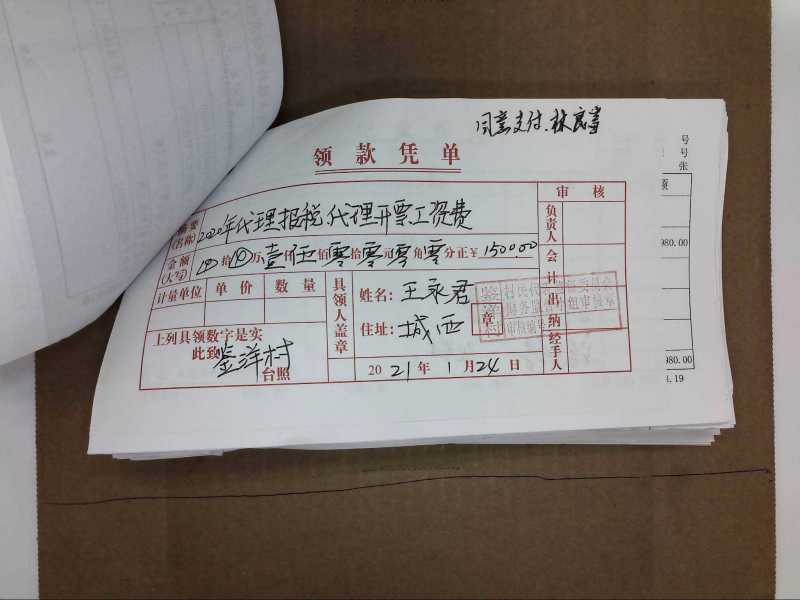 同意支付.林良富
领款凭单
摘要(名称) 2020年代理报税代理开票工资费
审核
负责人
金额(大写) ⊗拾⊗万壹仟伍佰零拾零元零角零分正￥1500.00
会计
计量单位 单价 数量
具领人盖章
姓名：王永君
住址：城西
出纳
经手人
上列具领数字是实
此致 鉴洋村
台照
2021年1月24日
号
号
张
980.00
980.00
.19